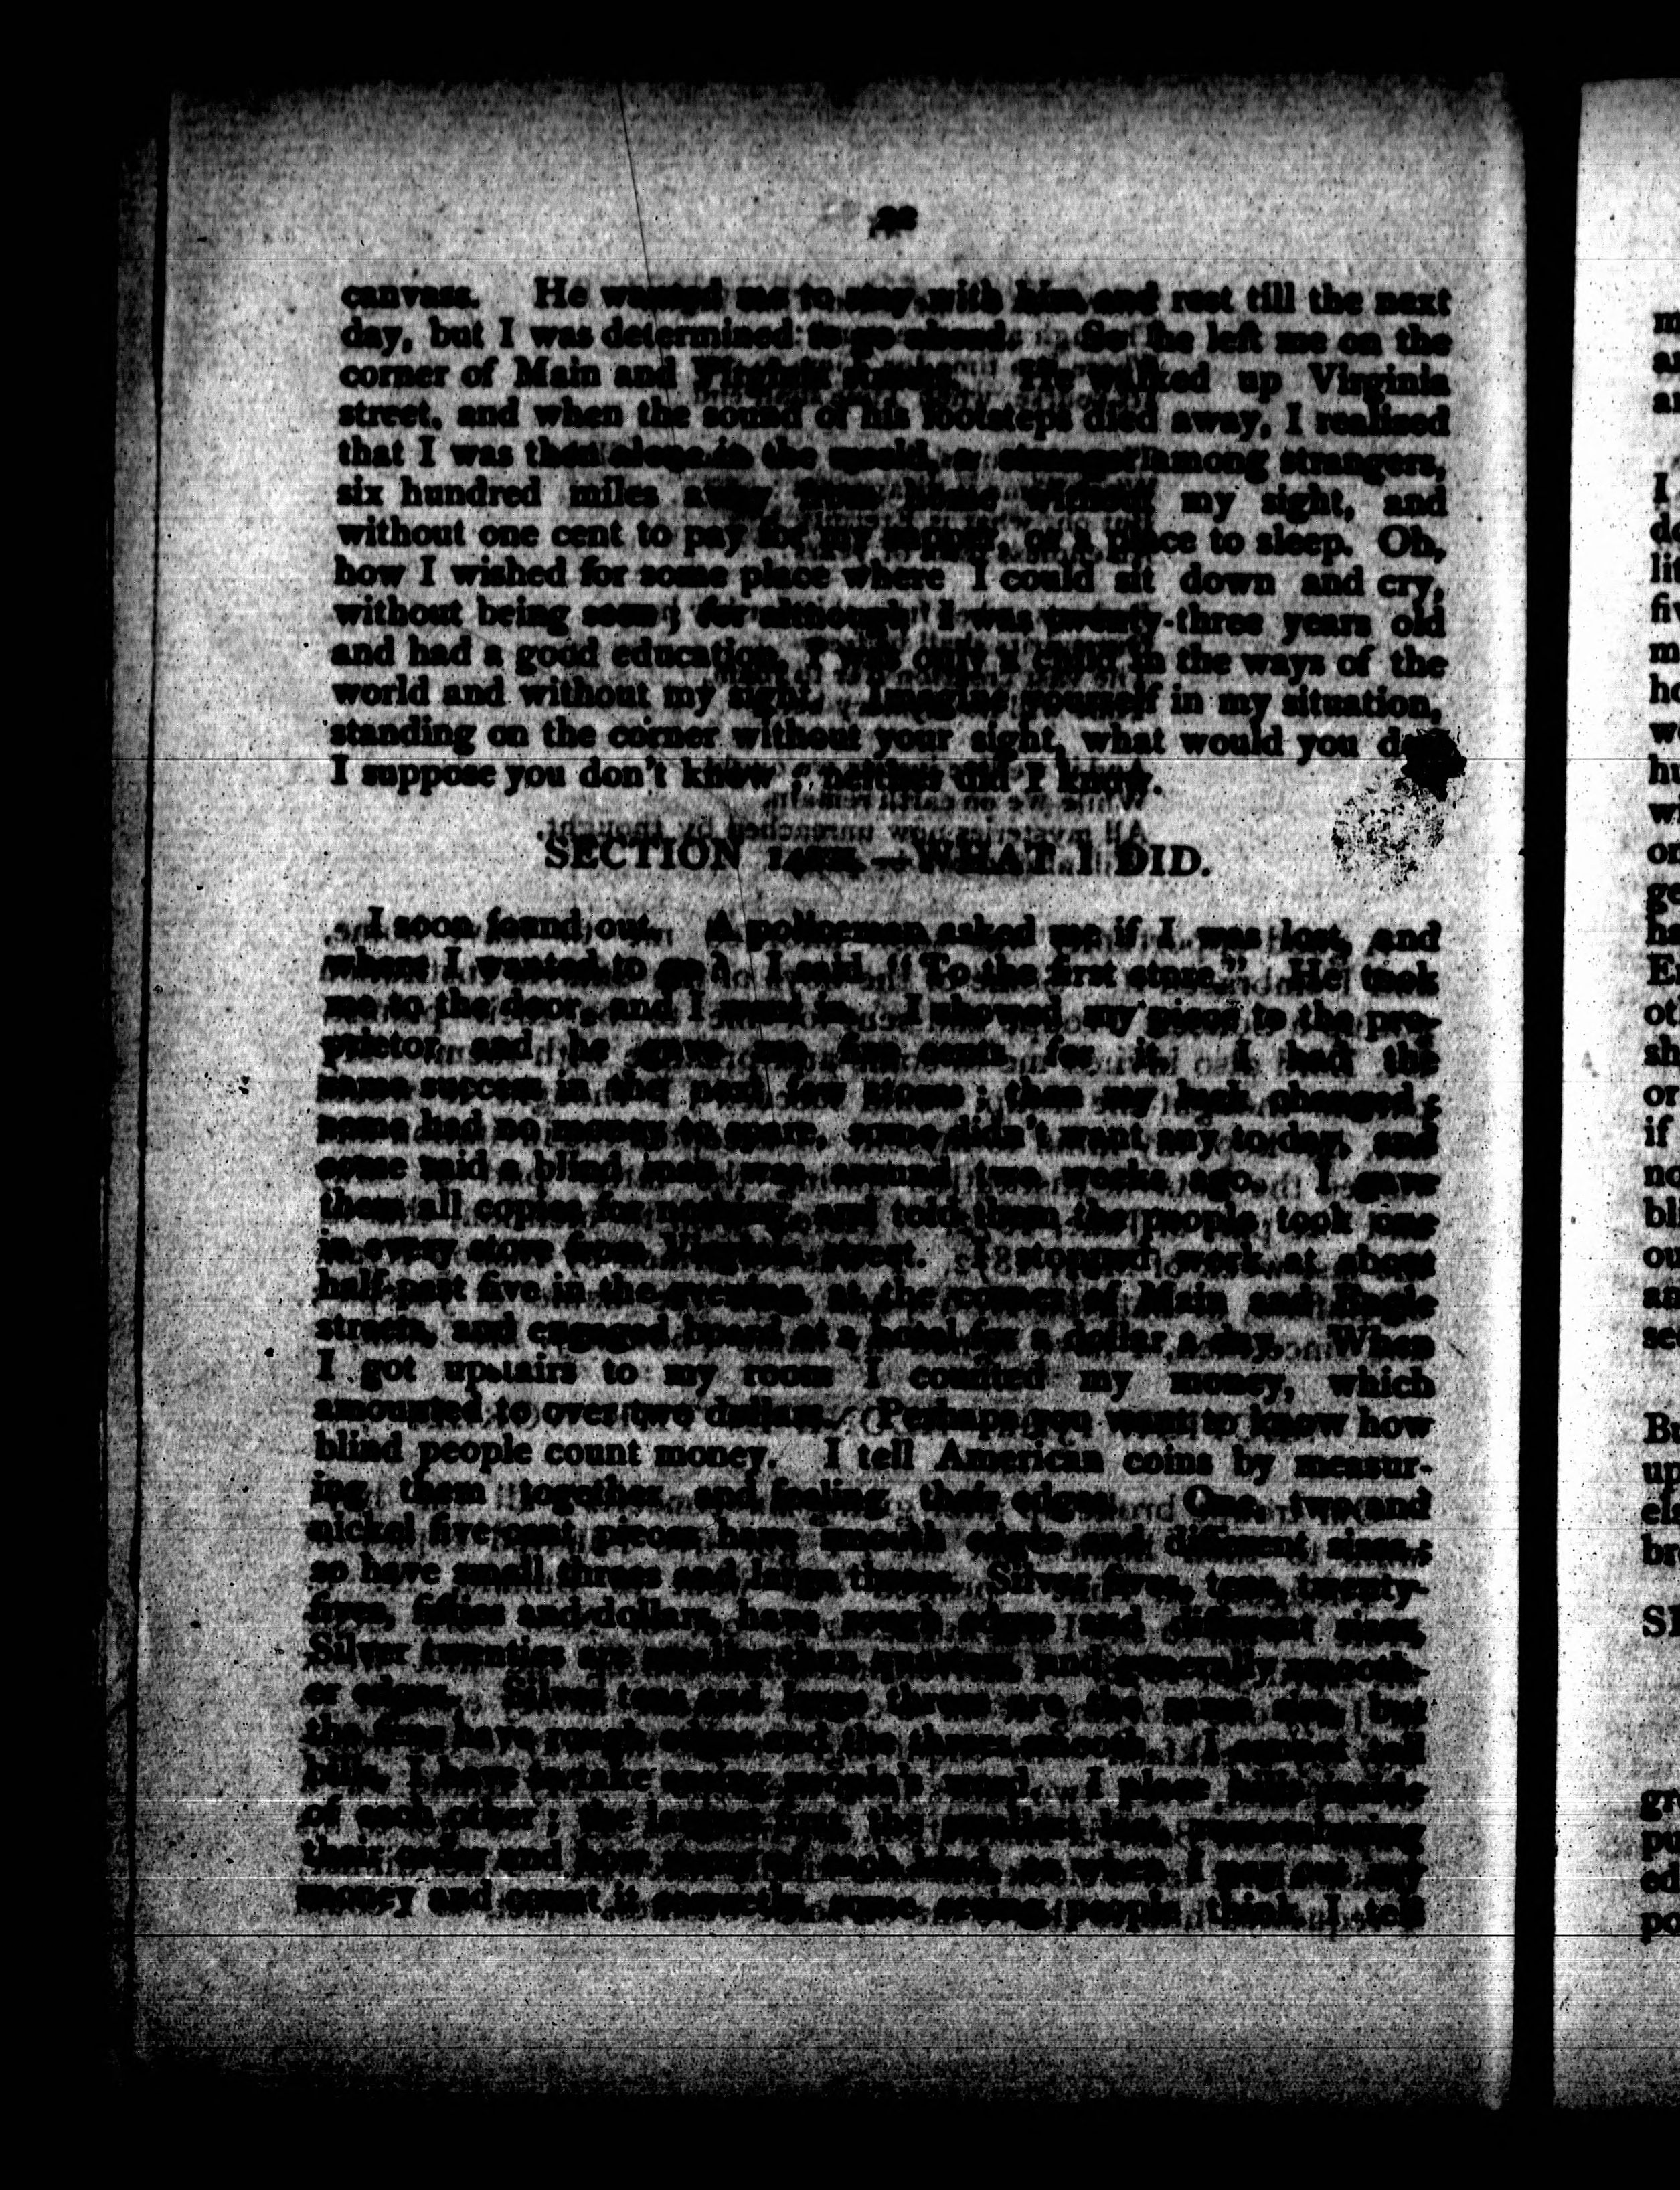 canvass. He wanted me to stay with him and rest till the next
day, but I was determined to go ahead. So he left me on the
corner of Main and Virginia streets. He walked up Virginia
street, and when the sound of his footsteps died away, I realised
that I was then alone in the world, a stranger among strangers,
six hundred miles away from home without my sight, and
without one cent to pay for my supper, or a place to sleep. Oh,
how I wished for some place where I could sit down and cry,
without being seen; for although I was twenty-three years old
and had a good education, I was only a child in the ways of the
world and without my sight. Imagine yourself in my situation,
standing on the corner without your sight, what would you
I suppose you don't know; neither did I know.
SECTION WHAT I DID.
I soon found out. A policeman asked me if I was lost, and
where I wanted to go. I said, "To the first store." He took
me to the door, and I went in. I showed my piece to the pro-
prietor and he gave me five cents for it. I had the
same success in the next few stores; then my luck changed;
some had no money to spare, some didn't want any to-day, and
some said a blind man was around two weeks ago. I gave
them all copies for nothing, and told them the people took one
in every store from Virginia street. I stopped work at about
half-past five in the evening, at the corner of Main and Eagle
streets, and engaged board at a hotel for a dollar a day. When
I got upstairs to my room I counted my money, which
amounted to over two dollars. Perhaps you want to know how
blind people count money. I tell American coins by measur-
ing them together and feeling their edges. One, two and
nickel five cent pieces have smooth edges and different sizes;
so have small threes and large threes. Silver fives, tens, twenty-
fives, fifties and dollars, have rough edges and different sizes.
Silver twenties are smaller than quarters, and generally smooth-
er edges. Silver tens and large threes are the same size, but
the tens have rough edges and the threes smooth. I cannot tell
bills, I have to take seeing people's word. I place bills inside
of each other; the largest first, the smallest last, remembering
their order and how many of each kind, so when I pay out my
money and count it correctly, some seeing people think I tell